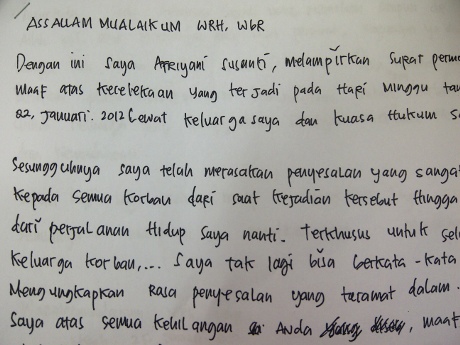 ASSALLAM MUALAIKUM WRH, WbR
Dengan ini saya Apriyani susanti, melampirkan surat
maaf atas kecelekaan yang terjadi pada Hari Minggu
22, januari. 2012 Lewat keluarga saya dan kuasa Hukum
Sesungguhnya saya telah merasakan penyesalan yang sangat
kepada semua korban dari saat kejadian tersebut hingga
dari perjalanan Hidup saya nanti. Terkhusus untuk
keluarga korban,... saya tak lagi bisa berkata-kata
Mengungkapkan Rasa penyesalan yang teramat dalam.
Saya atas semua kehilangan Anda maaf